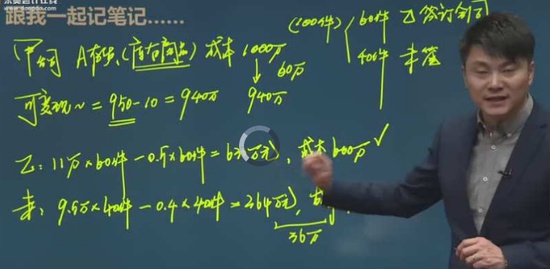 跟我一起记笔记......
甲公司 A产品(库存商品) 成本1000万
(100件) 60件 乙 签订合同
40件 未签
60万
可变现~ = 950-10=940万 940万
乙: 11万×60件-0.5×60件=63 万元), 成本600万 ✓
未: 9.5万×40件-0.4×40件=364万元),
36万